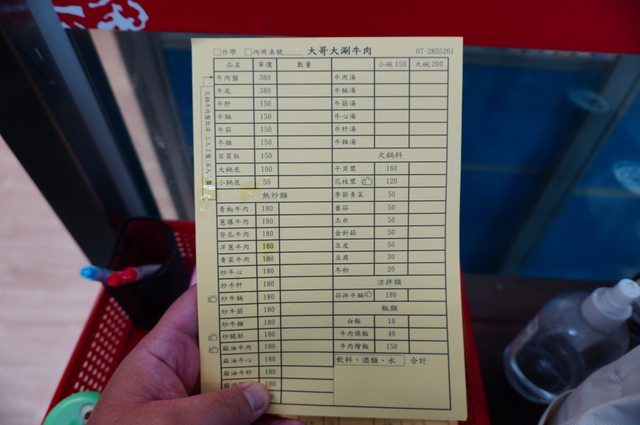 □外帶 □內用桌號 大哥大涮牛肉 07-2855261
品名 單價 數量 小碗150 大碗200
牛肉盤 380 牛肉湯
牛尾 380 牛腩湯
牛肝 150 牛筋湯
牛腩 150 牛心湯
牛筋 150 牛肝湯
牛雜 150 牛雜湯
百頁肚 150 火鍋料
火鍋底 100 干貝漿 160
小鍋底 50 花枝漿 120
熱炒類 季節青菜 50
青椒牛肉 180 番茄 50
蔥爆牛肉 180 玉米 50
苦瓜牛肉 180 金針菇 50
洋蔥牛肉 180 豆皮 50
青菜牛肉 180 豆腐 30
炒牛心 180 冬粉 20
炒牛肝 180 涼拌類
炒牛腩 180 蒜拌牛腩 180
炒牛筋 180 飯類
炒牛雜 180 白飯 10
炒毛肚 180 牛肉燥飯 40
麻油牛肉 180 牛肉燴飯 150
麻油牛心 180 飲料、酒類、水 合計
麻油牛肝 180
麻油 180